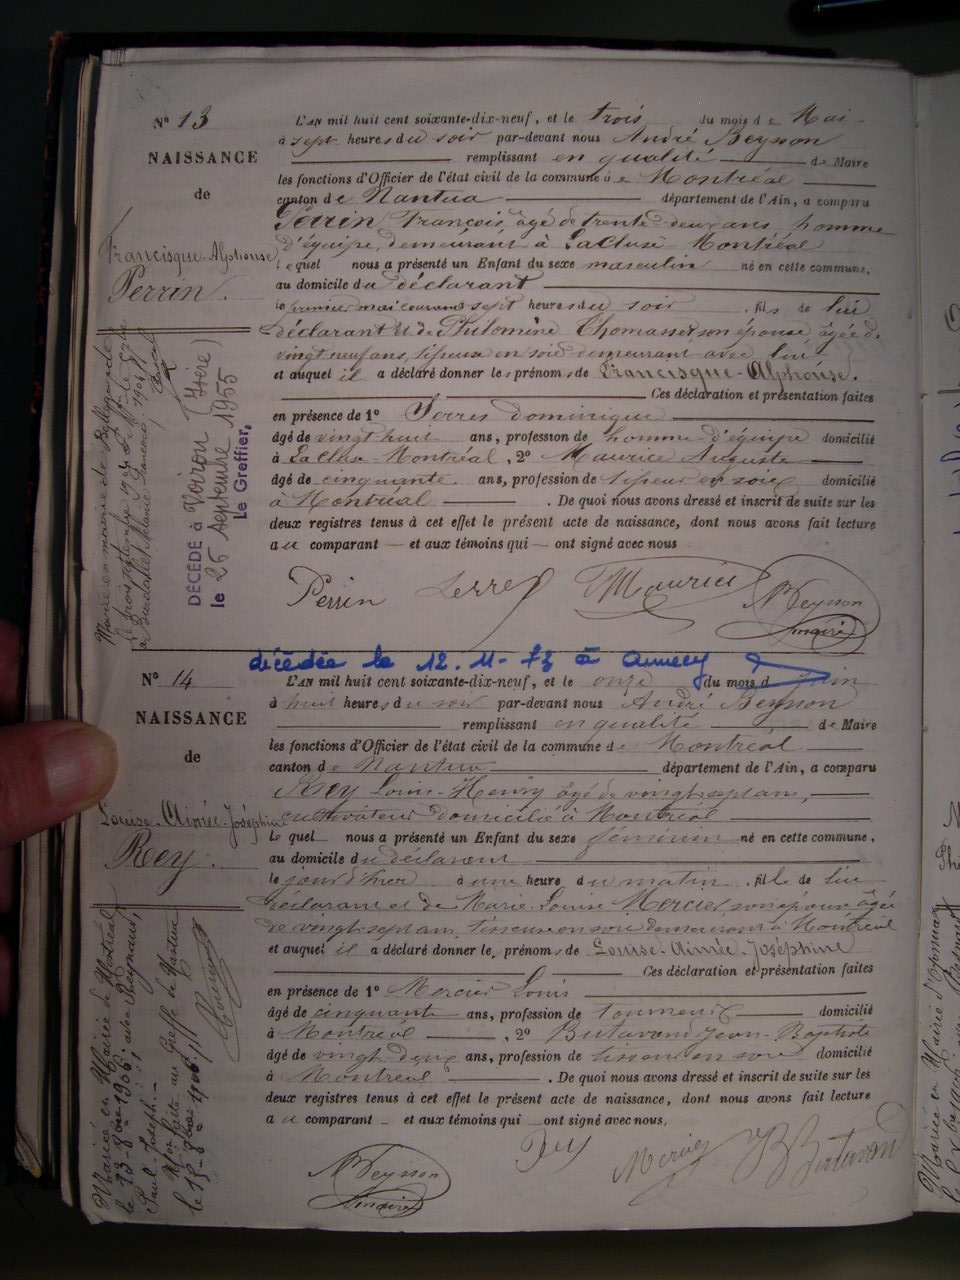 N° 13
NAISSANCE
de
Francisque-Alphonse
Perrin.
L'AN mil huit cent soixante-dix-neuf, et le trois du mois de Mai
à sept heures du soir par-devant nous André Beysson
remplissant en qualité de Maire
les fonctions d'Officier de l'état civil de la commune de Montréal
canton de Nantua département de l'Ain, a comparu
Perrin François, âgé de trente-deux ans, homme
d'équipe, demeurant à LaCluse-Montréal
lequel nous a présenté un Enfant du sexe masculin né en cette commune,
au domicile du déclarant
le premier mai courant sept heures du soir, fils de lui
déclarant et de Philomène Thomasset, son épouse, âgée de
vingt neuf ans, tisseuse en soie demeurant avec lui
et auquel il a déclaré donner les prénoms de Francisque-Alphonse.
Ces déclaration et présentation faites
en présence de 1° Serres dominique
âgé de vingt huit ans, profession de homme d'équipe domicilié
à LaCluse-Montréal, 2° Maurice Auguste
âgé de cinquante ans, profession de tisseur en soie domicilié
à Montréal. De quoi nous avons dressé et inscrit de suite sur les
deux registres tenus à cet effet le présent acte de naissance, dont nous avons fait lecture
au comparant et aux témoins qui ont signé avec nous
Perrin Serres Maurice Beysson
maire
Marié en mairie de
le trois
à
DÉCÉDÉ à Voiron (Isère)
le 25 Septembre 1955
Le Greffier,
décédée le 12.11-73 à Annecy
N° 14
NAISSANCE
de
Louise-Aimée-Joséphine
Rey.
L'AN mil huit cent soixante-dix-neuf, et le onze du mois d juin
à huit heures du soir par-devant nous André Beysson
remplissant en qualité de Maire
les fonctions d'Officier de l'état civil de la commune de Montréal
canton de Nantua département de l'Ain, a comparu
Rey Louis-Henry âgé de vingt sept ans,
cultivateur domicilié à Montréal
lequel nous a présenté un Enfant du sexe féminin né en cette commune,
au domicile du déclarant
le jour d'hier à une heure du matin, fille de lui
déclarant et de Marie-Louise Mercier, son épouse âgée
de vingt-sept ans, tisseuse en soie demeurant à Montréal
et auquel il a déclaré donner les prénoms de Louise-Aimée-Joséphine
Ces déclaration et présentation faites
en présence de 1° Mercier Louis
âgé de cinquante ans, profession de tonneur domicilié
à Montréal, 2° Butavand Jean-Baptiste
âgé de vingt deux ans, profession de tisseur en soie domicilié
à Montréal. De quoi nous avons dressé et inscrit de suite sur les
deux registres tenus à cet effet le présent acte de naissance, dont nous avons fait lecture
au comparant et aux témoins qui ont signé avec nous,
Rey Mercier JB Butavand
Beysson
maire
Mariée en Mairie de Montréal
le 13-8bre 1906, avec Reynaud,
Paul-Joseph.-
Avis faite au Greffe de Nantua
le 15-8bre 1906
Mariée en Mairie d'Oyonnax